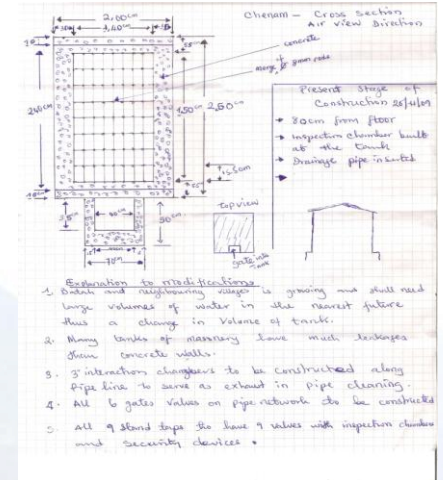 Chenam - Cross Section
Air View Direction
2,00cm
1,40cm
concrete
240cm
150cm
250cm
15.5cm
50cm
70cm
Present Stage of
Construction 25/4/09
80cm from floor
Inspection chamber built
at the tank
Drainage pipe inserted
top view
gate into
Explanation to Modifications
1. and neighbouring villages is growing and shall need
large volumes of water in the nearest future
thus a change in volume of tank.
2. Many tanks of masonery have much leakages
than concrete walls.
3. 3 interaction chambers to be constructed along
pipe line to serve as exhaust in pipe cleaning.
4. All 6 gates valves on pipe network to be constructed
5. All 9 stand taps to have 9 valves with inspection chamber
and security devices.